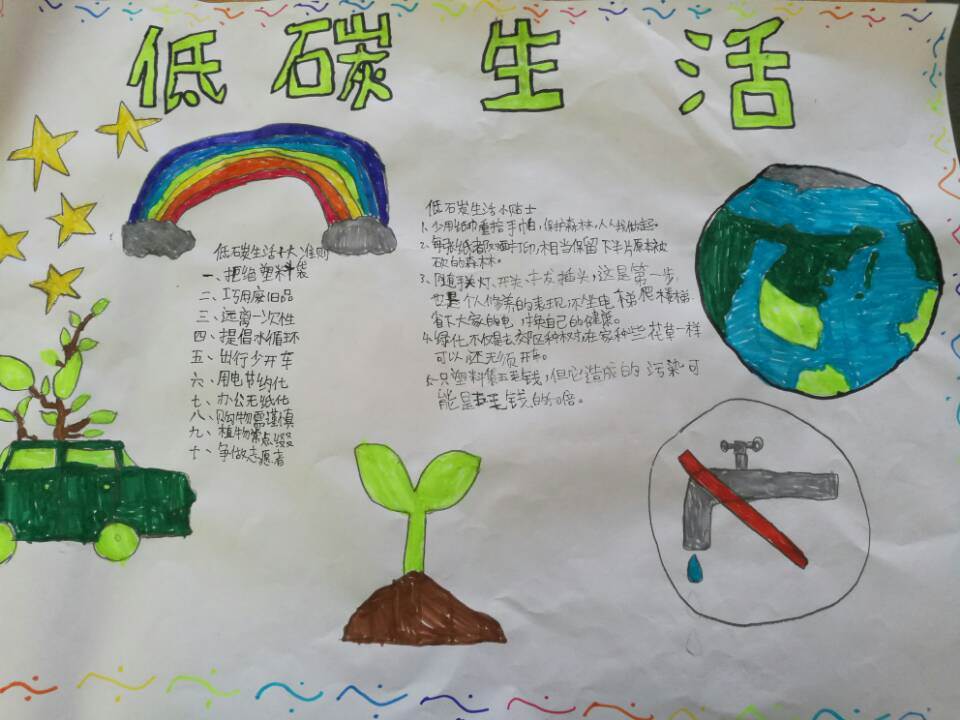 低碳生活
低碳生活十大准则
一、拒绝塑料袋
二、巧用废旧品
三、远离一次性
四、提倡水循环
五、出行少开车
六、用电节约化
七、办公无纸化
八、购物需谨慎
九、植物常点缀
十、争做志愿者
低碳生活小贴士
1、少用纸巾重拾手帕,保护森林,人人我做起。
2、每张纸都双面打印,相当保留下半片原本被
砍的森林。
3、随手关灯、开关、拔插头,这是第一步,
也是个人修养的表现,不坐电梯爬楼梯
省下大家的电,换自己的健康。
4、绿化不仅是去郊区种树,在家种些花草一样
可以,还无须开车。
5、只塑料袋五毛钱,但它造成的污染可
能是五毛钱的倍。